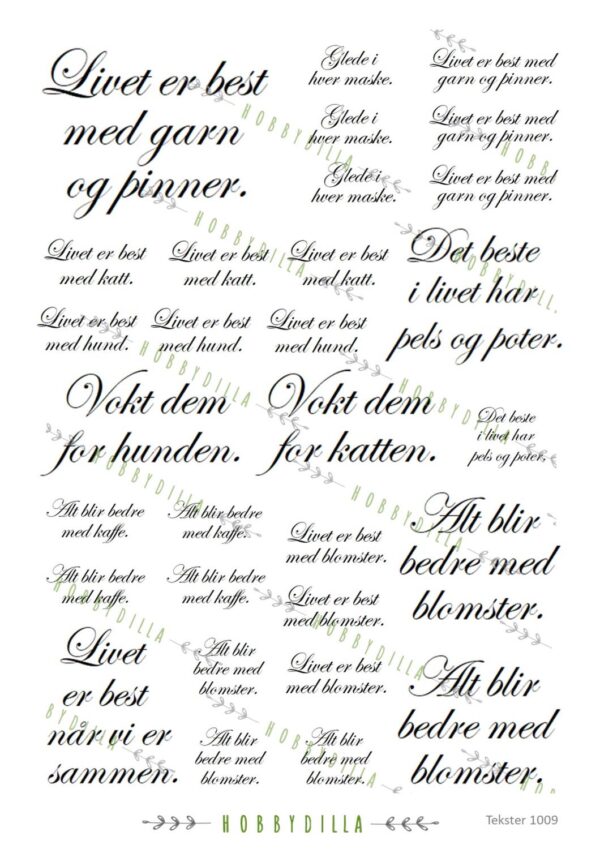 Livet er best
med garn
og pinner.
Glede i
hver maske.
Glede i
hver maske.
Glede i
hver maske.
Livet er best med
garn og pinner.
Livet er best med
garn og pinner.
Livet er best med
garn og pinner.
HOBBYDILLA
HOBBYDILLA
Livet er best
med katt.
Livet er best
med katt.
Livet er best
med katt.
Det beste
i livet har
pels og poter.
Livet er best
med hund.
Livet er best
med hund.
Livet er best
med hund.
HOBBYDILLA
HOBBYDILLA
Vokt dem
for hunden.
Vokt dem
for katten.
Det beste
i livet har
pels og poter.
HOBBYDILLA
HOBBYDILLA
Alt blir bedre
med kaffe.
Alt blir bedre
med kaffe.
Alt blir bedre
med kaffe.
Alt blir bedre
med kaffe.
Livet er best
med blomster.
Livet er best
med blomster.
Livet er best
med blomster.
Alt blir
bedre med
blomster.
HOBBYDILLA
HOBBYDILLA
Livet
er best
når vi er
sammen.
Alt blir
bedre med
blomster.
Alt blir
bedre med
blomster.
Alt blir
bedre med
blomster.
Alt blir
bedre med
blomster.
HOBBYDILLA
HOBBYDILLA
Tekster 1009